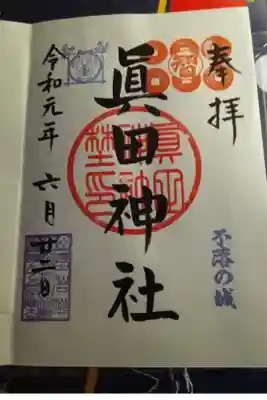 奉拝
不落の城
眞田神社
令和元年 六月 廿二日